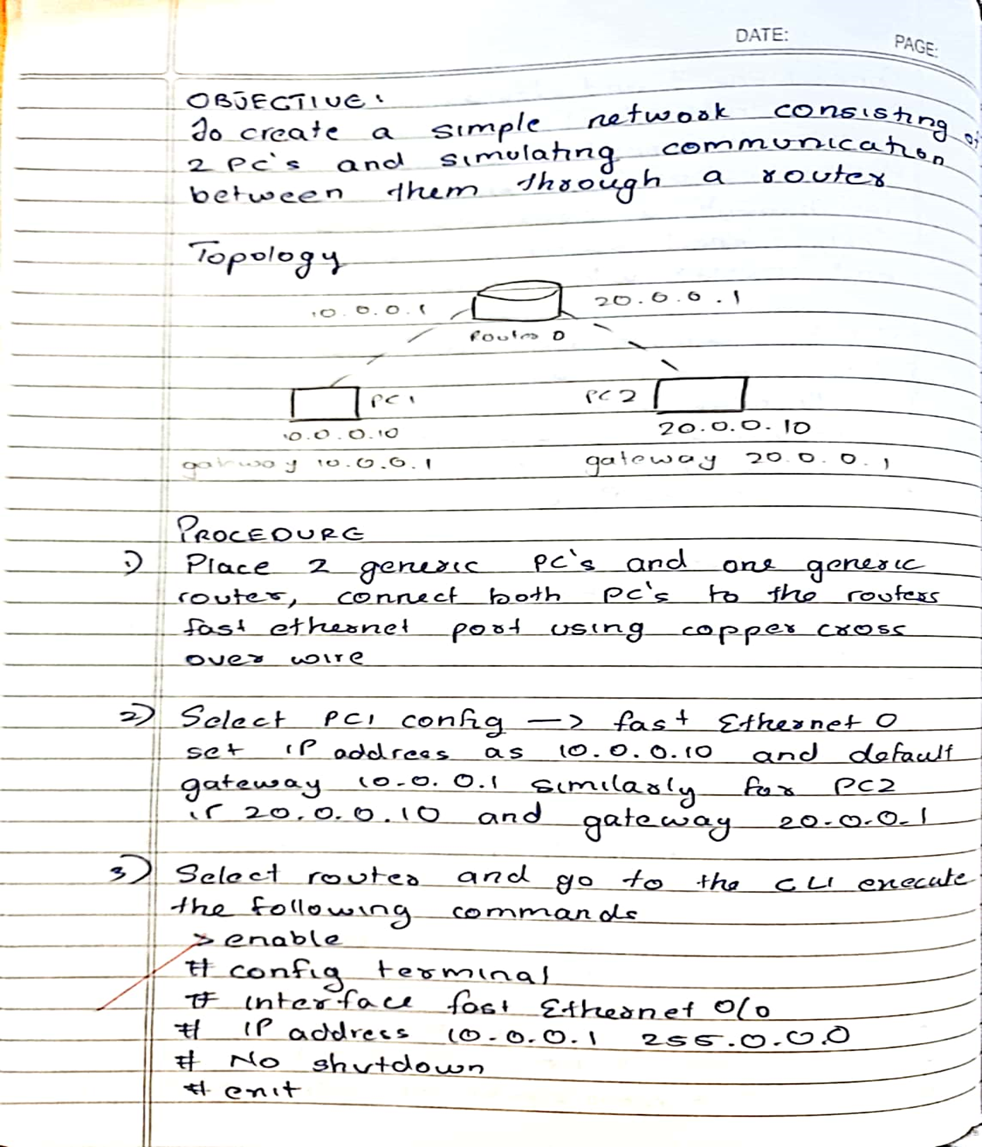 DATE:
PAGE:
OBJECTIVE:
To create a simple network consisting of
2 PC's and simulating communication
between them through a router
Topology
10.0.0.1 20.0.0.1
Router 0
PC1 PC2
10.0.0.10 20.0.0.10
gateway 10.0.0.1 gateway 20.0.0.1
PROCEDURE
1) Place 2 generic PC's and one generic
router, connect both PC's to the routers
fast ethernet port using copper cross
over wire
2) Select PC1 config —> fast Ethernet 0
set IP address as 10.0.0.10 and default
gateway 10.0.0.1 similarly for PC2
IP 20.0.0.10 and gateway 20.0.0.1
3) Select router and go to the CLI execute
the following commands
> enable
# config terminal
# interface fast Ethernet 0/0
# IP address 10.0.0.1 255.0.0.0
# No shutdown
# exit